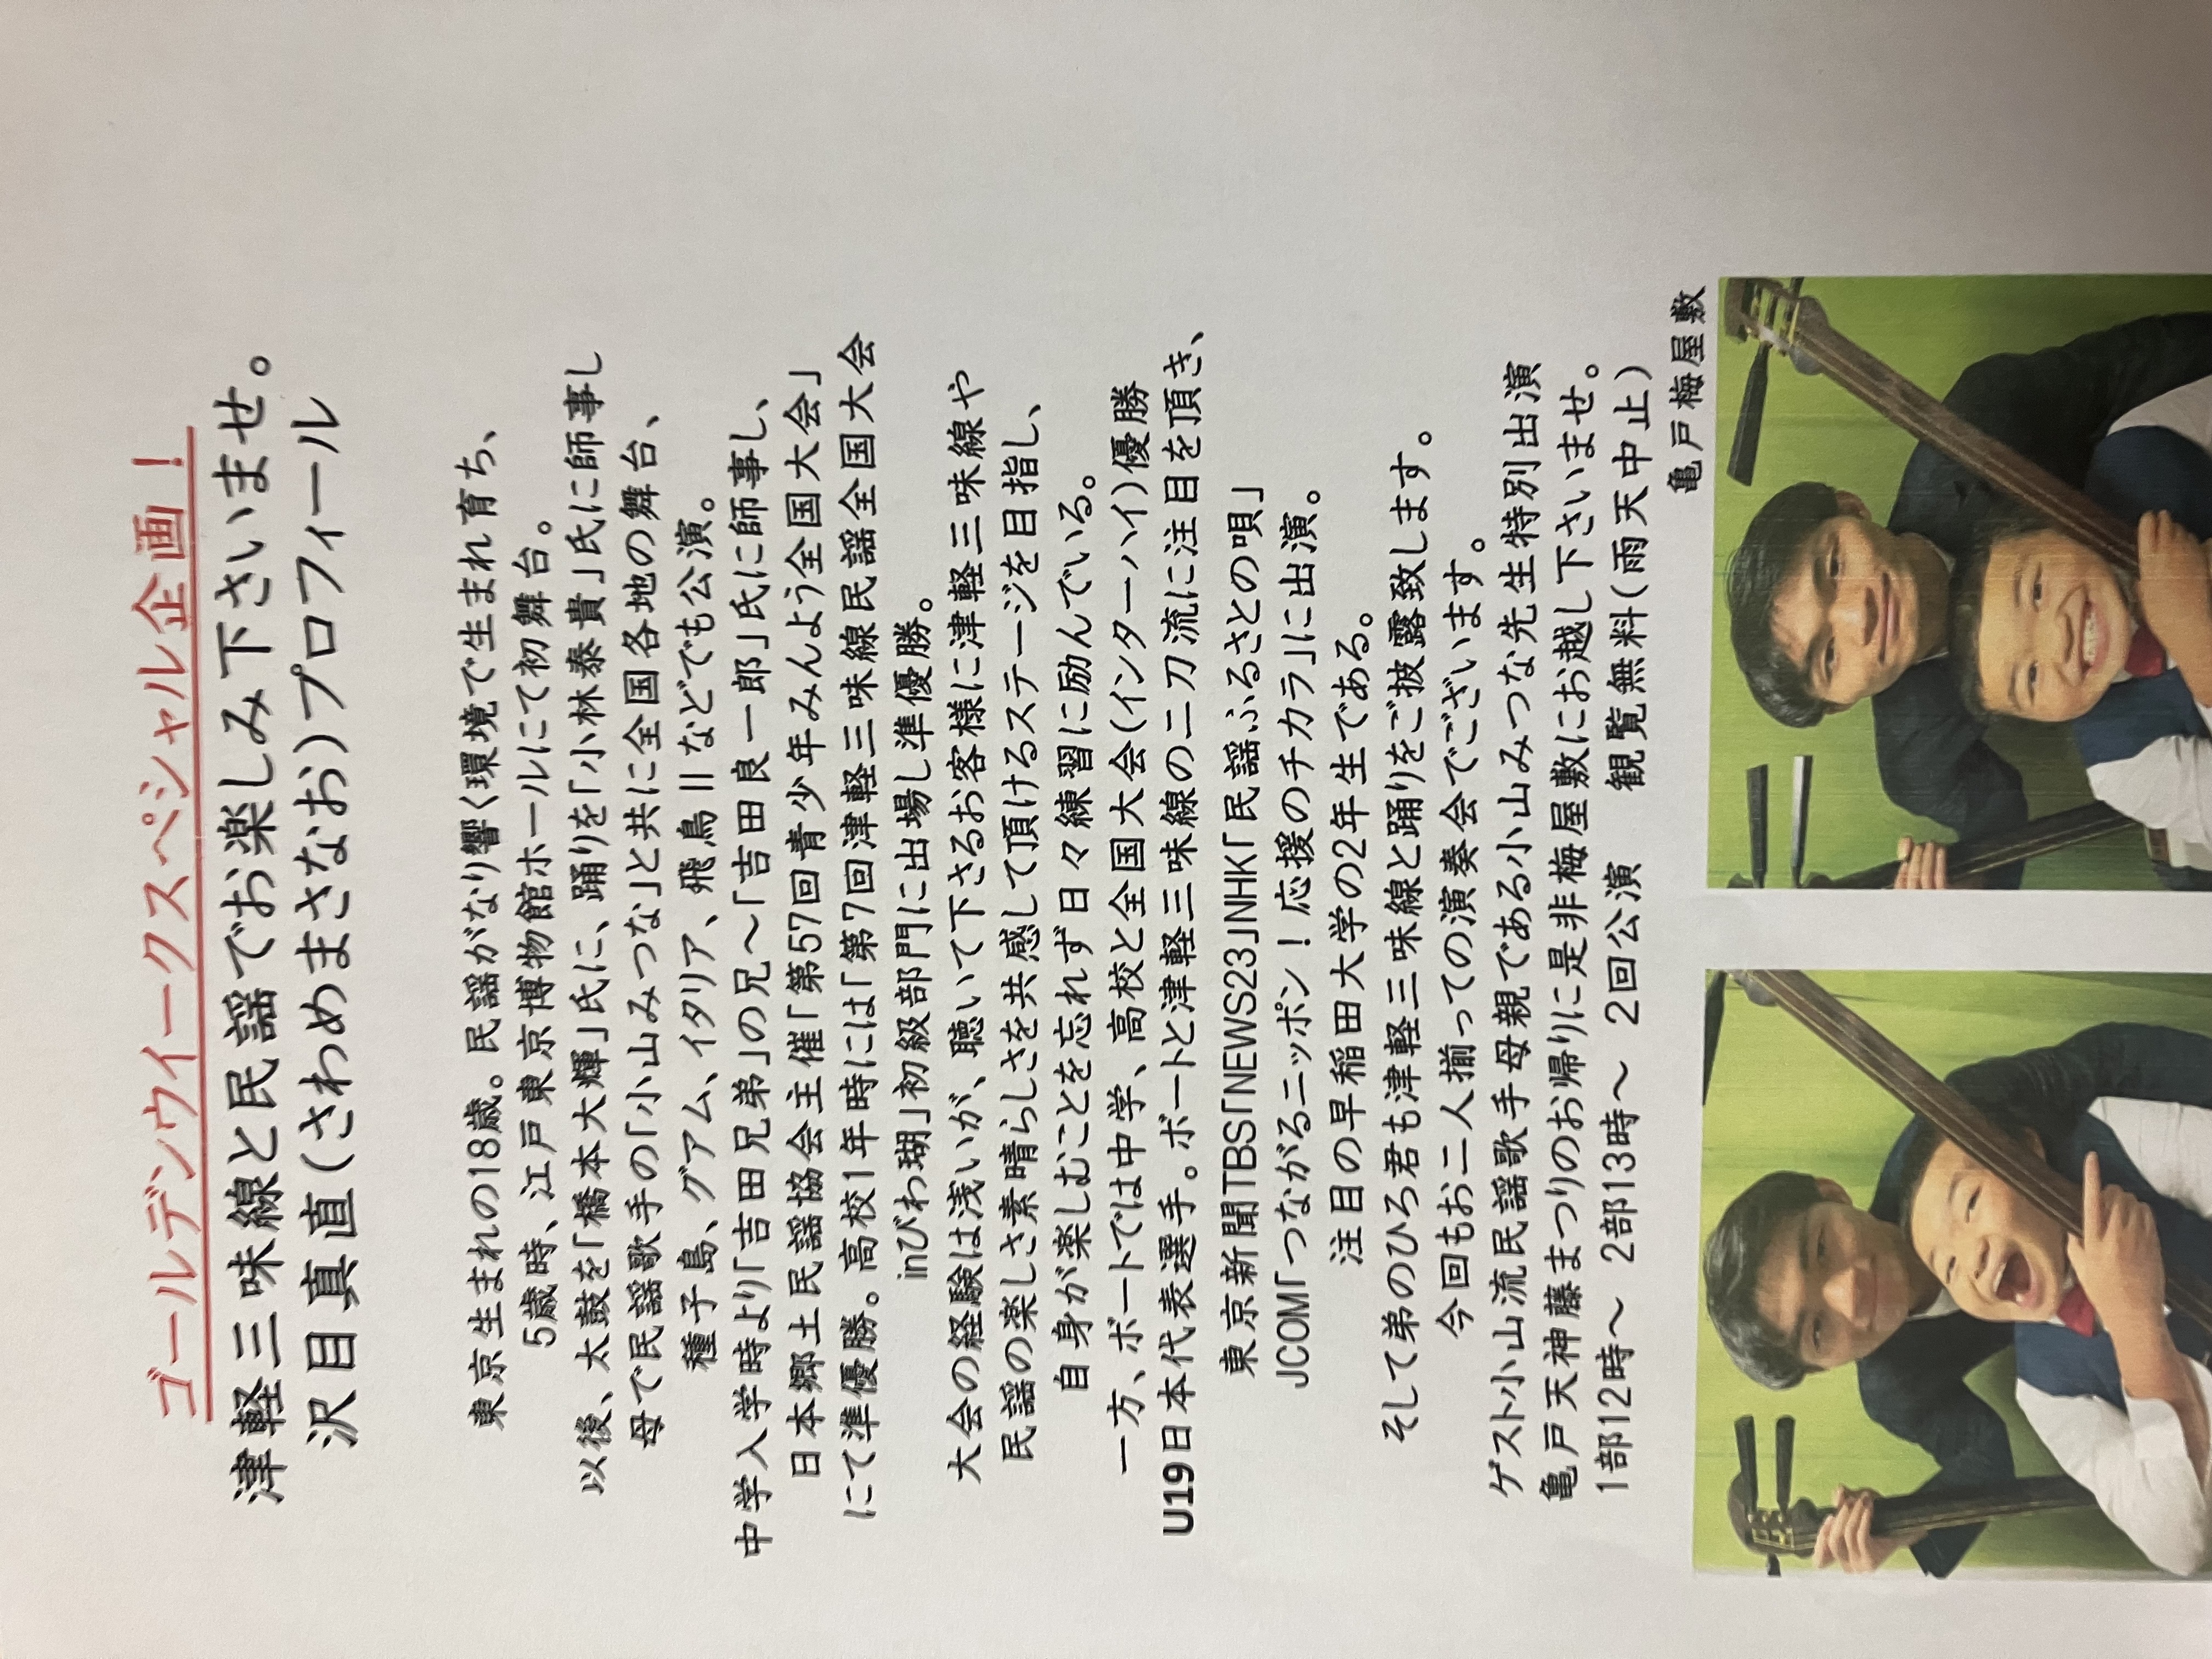 ゴールデンウイークスペシャル企画！
津軽三味線と民謡でお楽しみ下さいませ。
沢目真直（さわめまさなお）プロフィール
東京生まれの18歳。民謡がなり響く環境で生まれ育ち、
5歳時、江戸東京博物館ホールにて初舞台。
以後、太鼓を「橋本大輝」氏に、踊りを「小林泰貴」氏に師事し
母で民謡歌手の「小山みつな」と共に全国各地の舞台、
種子島、グアム、イタリア、飛鳥Ⅱなどでも公演。
中学入学時より「吉田兄弟」の兄～「吉田良一郎」氏に師事し、
日本郷土民謡協会主催「第57回青少年みんよう全国大会」
にて準優勝。高校1年時には「第7回津軽三味線民謡全国大会
inびわ瑚」初級部門に出場し準優勝。
大会の経験は浅いが、聴いて下さるお客様に津軽三味線や
民謡の楽しさ素晴らしさを共感して頂けるステージを目指し、
自身が楽しむことを忘れず日々練習に励んでいる。
一方、ボートでは中学、高校と全国大会（インターハイ）優勝
U19日本代表選手。ボートと津軽三味線の二刀流に注目を頂き、
東京新聞TBS「NEWS23」NHK「民謡ふるさとの唄」
JCOM「つながるニッポン！応援のチカラ」に出演。
注目の早稲田大学の2年生である。
そして弟のひろ君も津軽三味線と踊りをご披露致します。
今回もお二人揃っての演奏会でございます。
ゲスト小山流民謡歌手母親である小山みつな先生特別出演
亀戸天神藤まつりのお帰りに是非梅屋敷にお越し下さいませ。
1部12時～　2部13時～　2回公演　観覧無料（雨天中止）
亀戸梅屋敷